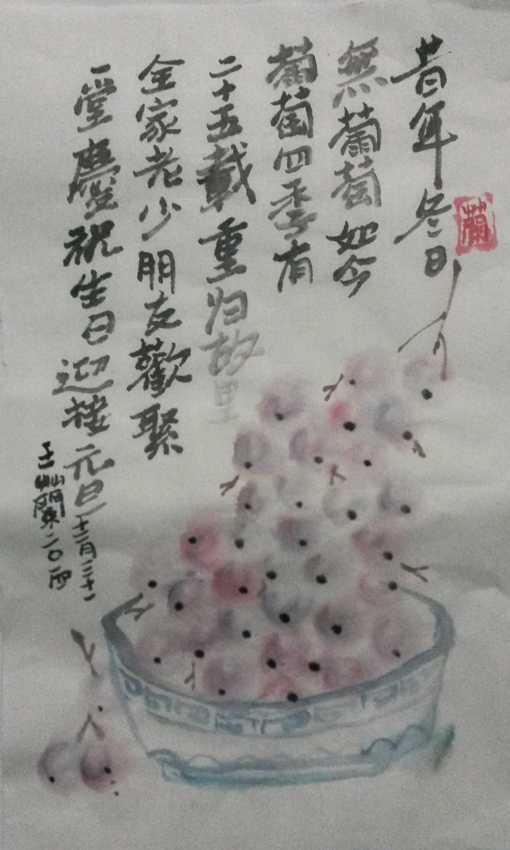 昔年冬日
無葡萄如今
葡萄四季有
二十五載重归故里
全家老少朋友歡聚
一堂慶祝生日迎接元旦
十二月三十一
蘭